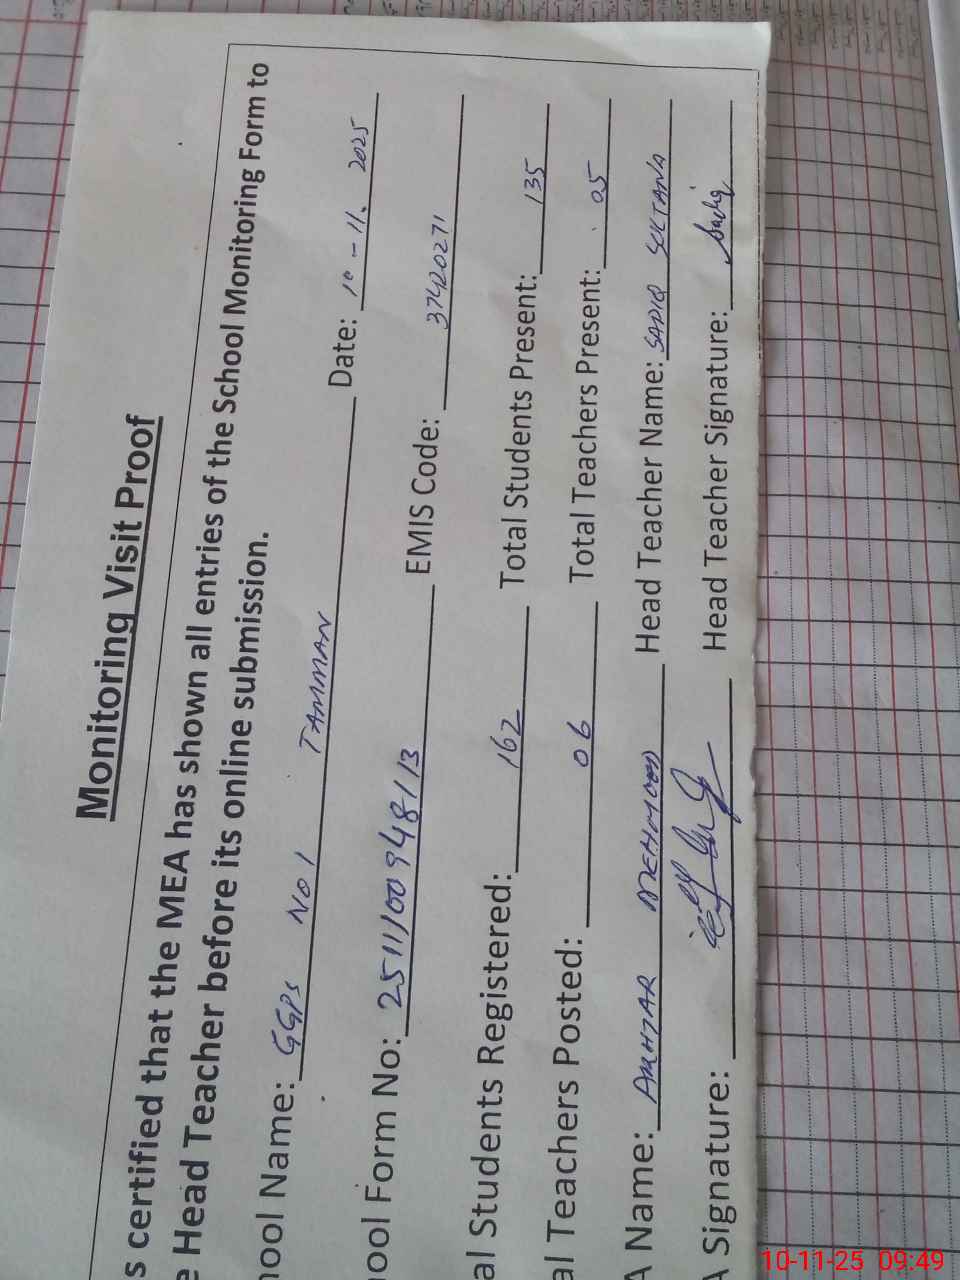 Monitoring Visit Proof
s certified that the MEA has shown all entries of the School Monitoring Form to
e Head Teacher before its online submission.
hool Name: GGPS NO 1 TAMMAN Date: 10-11-2025
hool Form No: 2511100948113 EMIS Code: 37420271
al Students Registered: 162 Total Students Present: 135
al Teachers Posted: 06 Total Teachers Present: 05
A Name: AMHAR MEHMOOD Head Teacher Name: SADIQ SULTANA
A Signature: Head Teacher Signature: Sadiq
10-11-25 09:49